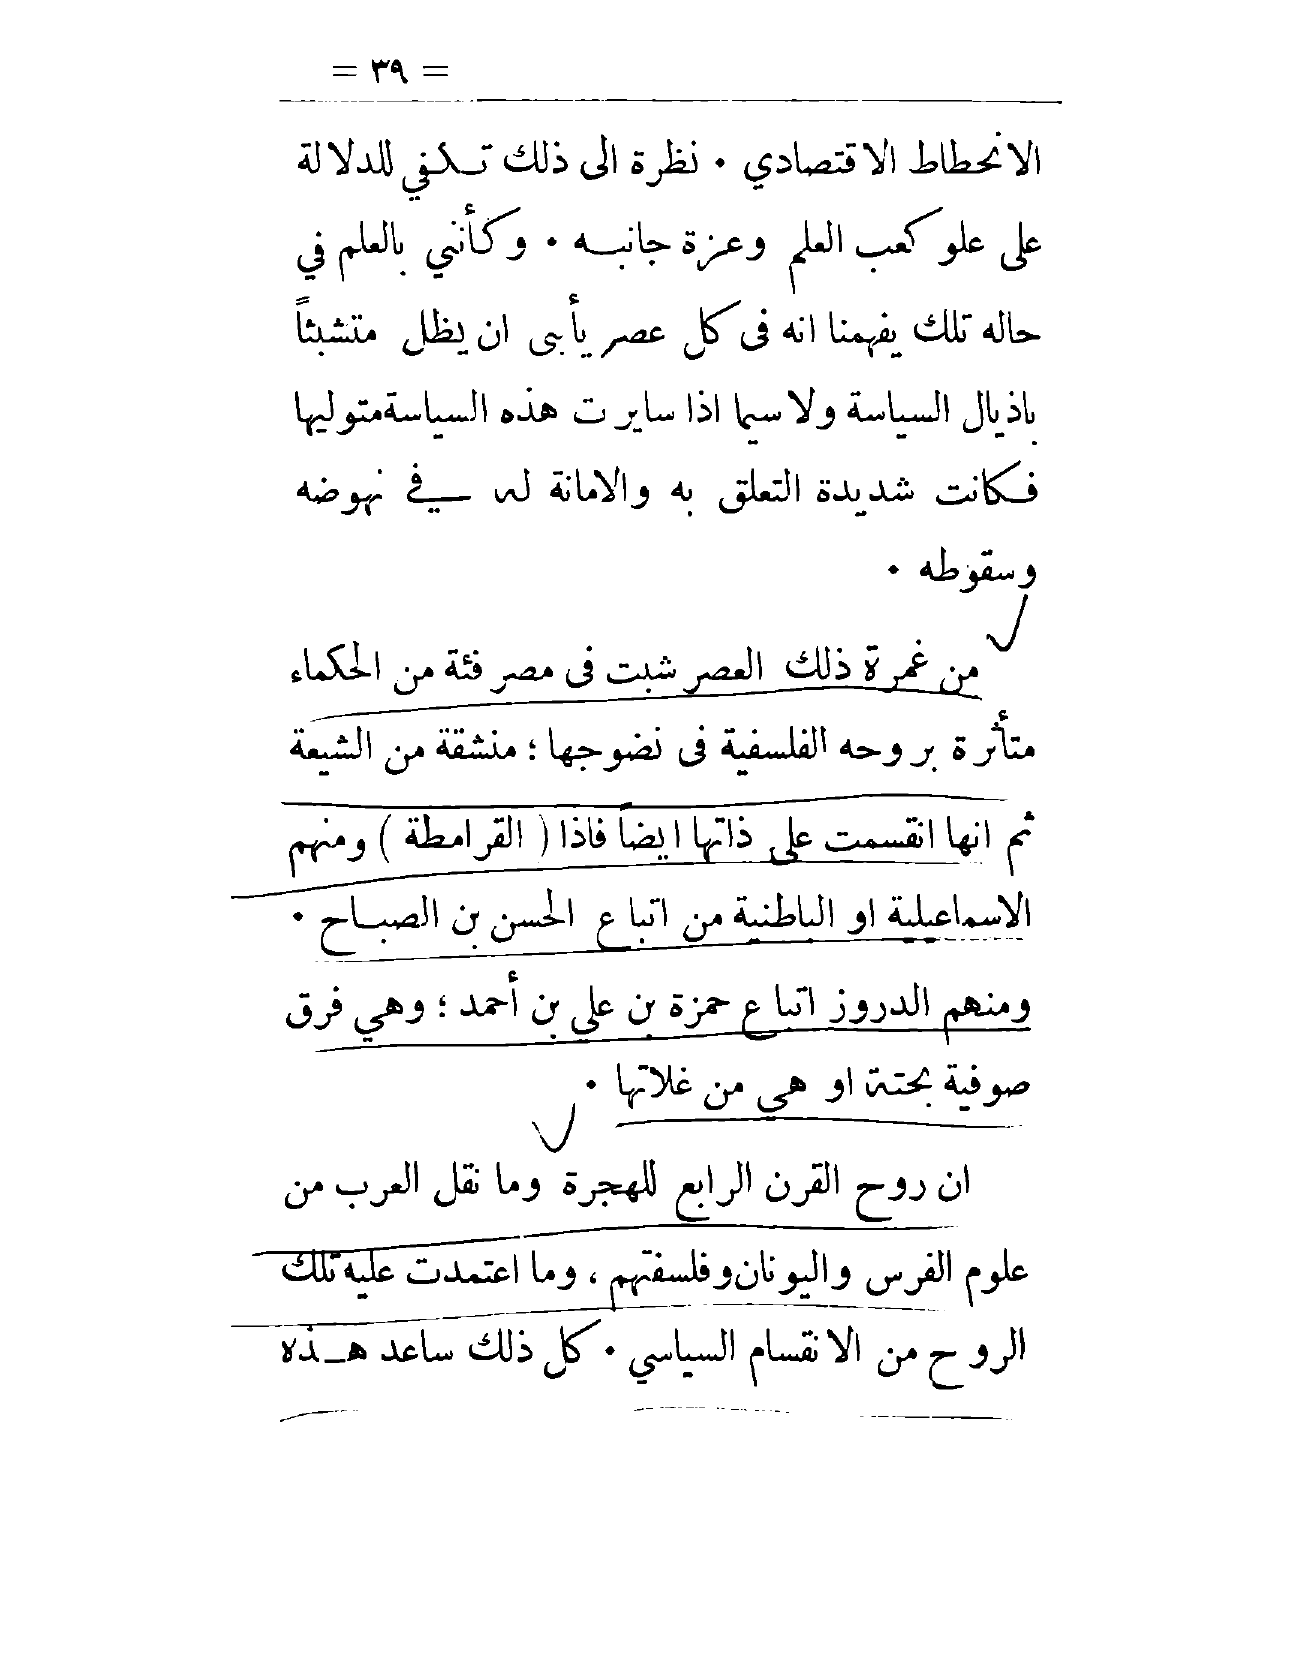 = ٣٩ =
الانحطاط الاقتصادي . نظرة الى ذلك تكفي للدلالة
على علو كعب العلم وعزة جانبه . وكأنني بالعلم في
حاله تلك يفهمنا انه فى كل عصر يأبى ان يظل متشبثاً
باذيال السياسة ولا سيما اذا سايرت هذه السياسة متوليها
فكانت شديدة التعلق به والامانة له في نهوضه
وسقوطه .
من غمرة ذلك العصر شبت فى مصر فئة من الحكماء
متأثرة بروحه الفلسفية فى نضوجها ؛ منشقة من الشيعة
ثم انها انقسمت على ذاتها ايضاً فاذا ( القرامطة ) ومنهم
الاسماعيلية او الباطنية من اتباع الحسن بن الصباح .
ومنهم الدروز اتباع حمزة بن علي بن أحمد ؛ وهي فرق
صوفية بحتة او هي من غلاتها .
ان روح القرن الرابع للهجرة وما نقل العرب من
علوم الفرس واليونان وفلسفتهم ، وما اعتمدت عليه تلك
الروح من الانقسام السياسي . كل ذلك ساعد هذه